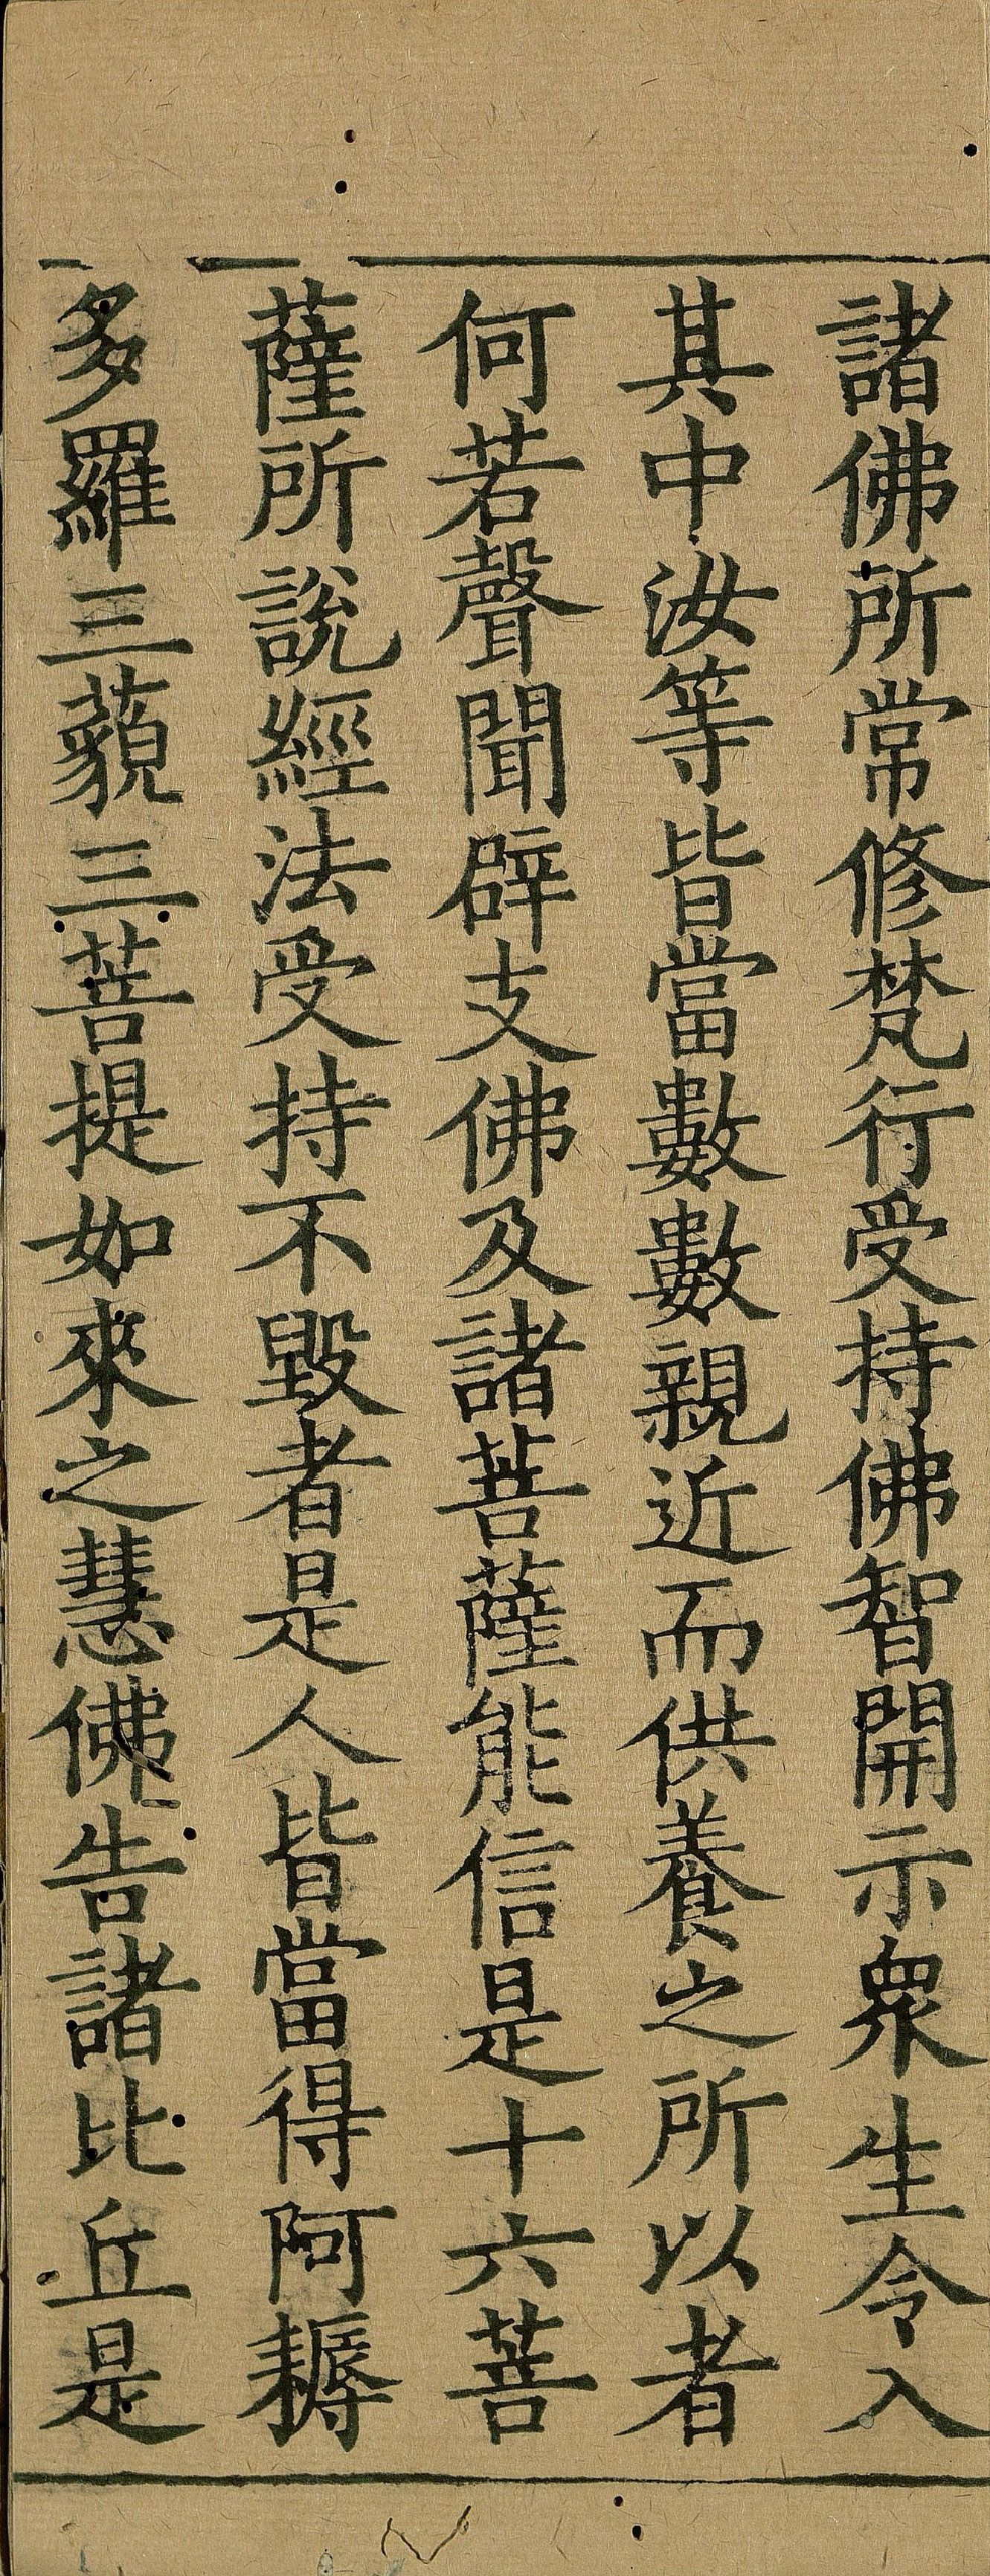 諸佛所常修梵行受持佛智開示衆生令入
其中汝等皆當數數親近而供養之所以者
何若聲聞辟支佛及諸菩薩能信是十六菩
薩所說經法受持不毀者是人皆當得阿耨
多羅三藐三菩提如來之慧佛告諸比丘是